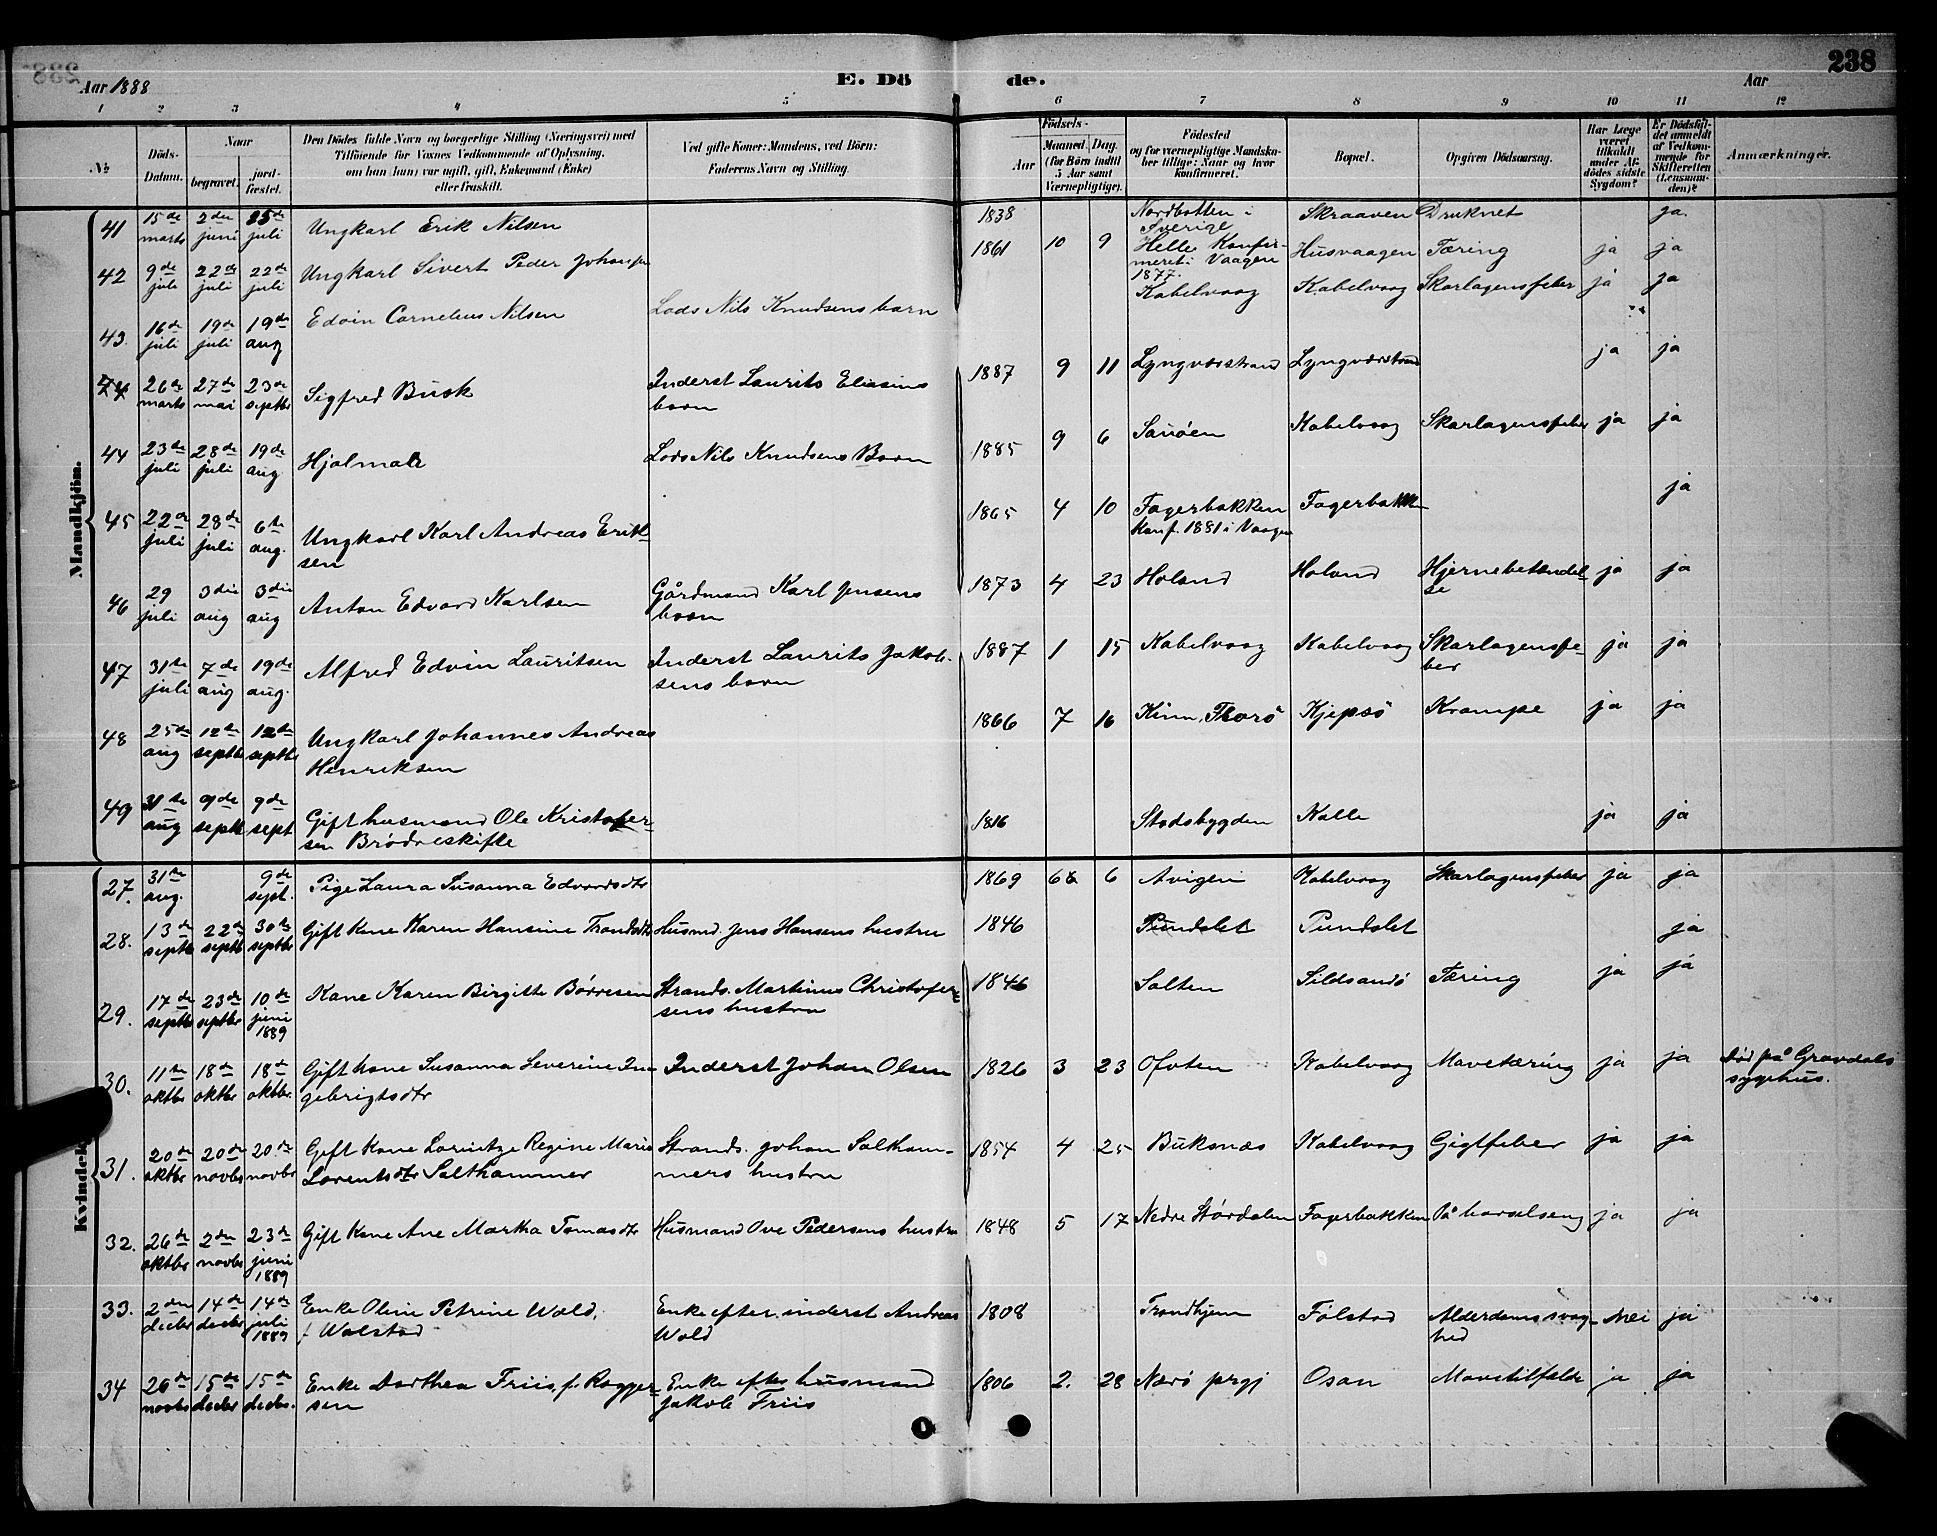 238
Aar 1888
E. Dö de.
Aar
1 2 3 4 5 6 7 8 9 10 11 12
No
Döds-Datum.
Naar
begravet.
jord-fæstet.
Den Dödes fulde Navn og borgerlige Stilling (Næringsvei) med
Tilföiende for Voxnes Vedkommende af Oplysning,
om han (hun) var ugift, gift, Enkemand (Enke)
eller fraskilt.
Ved gifte Koner: Mandens, ved Börn:
Faderens Navn og Stilling.
Födsels-
Aar
Maaned. Dag.
(for Börn indtil
5 Aar samt
Værnepligtige).
Födested
og for værnepligtige Mandska-
ber tillige: Naar og hvor
konfirmeret.
Bopæl.
Opgiven Dödsaarsag.
Har Læge
været
tilkaldt
under Af-
dödes sidste
Sygdom?
Er Dödsfal-
det anmeldt
af Vedkom-
mende for
Skifteretten
(Lensman-
den)?
Anmærkninger.
Mandkjön.
41 15de marts 2den juni 25de juli Ungkarl Erik Nilsen 1838 Nordbotten i Sverige Skraaven Druknet ja.
42 9de juli 22de juli 22de juli Ungkarl Sivert Peder Johansen 1861 10 9 Helle Konfir-
meret i Vaagen 1877. Husvaagen Tæring ja ja
43. 16de juli 19de juli 19de aug Edvin Cornelius Nilsen Lods Nils Knudsens barn Kabelvaag Kabelvaag Skarlagensfeber ja ja
44 26de marts 27de mai 23de septbr Sigfred Busk Inderst Laurits Eliasens
barn 1887 9 11 Lyngværstrand Lyngværstrand ja ja
44 23de juli 28de juli 19de aug Hjalmar Lods Nils Knudsens Barn 1885 9 6 Sauøen Kabelvaag Skarlagensfeber ja ja
45 22de juli 28de juli 6te aug. Ungkarl Karl Andreas Erik-
sen 1865 4 10 Fagerbakken
Konf. 1881 i Vaagen Fagerbakken ja
46 29 juli 3die aug 3die aug Anton Edvard Karlsen Gårdmand Karl Jensens
barn 1873 4 23 Holand Holand Hjernebetændel-
se ja ja
47 31te juli 7de aug 19de aug. Alfred Edvin Lauritsen Inderst Laurits Jakob-
sens barn 1887 1 15 Kabelvaag Kabelvaag Skarlagensfe-
ber ja ja
48 25de aug 12te septbr 12te septbr Ungkarl Johannes Andreas
Henriksen 1866 7 16 Kinn, Thorø Kjepsø Krampe ja ja
49 31te aug 9de septb 9de sept Gift husmand Ole Kristofer-
sen Brødreskifte 1816 Stadsbygden Kalle ja ja
Kvindek
27. 31te aug. 9de sept. Pige Laura Susanna Edvardsdtr 1869 6 6 Avigen Kabelvaag Skarlagensfeber ja ja
28. 13de septb 22de septb 30te septbr Gift Kone Karen Hansine Trondsdtr Husmd. Jens Hansens hustru 1846 Pundslet Pundslet ja
29. 17de septbr 23de septbr 10de juni 1889 Kone Karen Birgitte Børresen Strands. Martinus Christofer-
sens hustru 1846 Salten Sildsandø Tæring ja ja
30. 11te oktbr 18de oktbr 18de oktbr. Gift kone Susanna Severine In-
gebrigtsdtr Inderst Johan Olsen 1826 3 23 Ofoten Kabelvaag Mavetæring ja ja Død på Gravdals
sygehus.
31. 20de oktbr 20de novbr 20de novbr Gift Kone Lornitze Regine Marie
Lorentsdtr Salthammer Strands. Johan Saltham-
mers hustru 1854 4 25 Buksnæs Kabelvaag Gigtfeber ja ja
32. 26de oktbr 2den novbr 23de juni 1889 Gift Kone Ane Martha Tomasdtr Husmand Ove Pedersens hustru 1848 5 17 Nedre Størdalen Fagerbakken På barselseng ja ja
33. 2den decbr 14de decbr 14de juli 1889 Enke Oline Petrine Wold,
f. Wolstad Enke efter inderst Andreas
Wold 1808 Trondhjem Følstad Alderdomssvag-
hed Nei ja
34 26de novbr 15de decbr 15de decbr. Enke Dorthea Friis, f. Rogger-
sen Enke efter husmand
Jakob Friis 1806 2. 28 Nærø prgj Osan Mavetilfælde ja ja